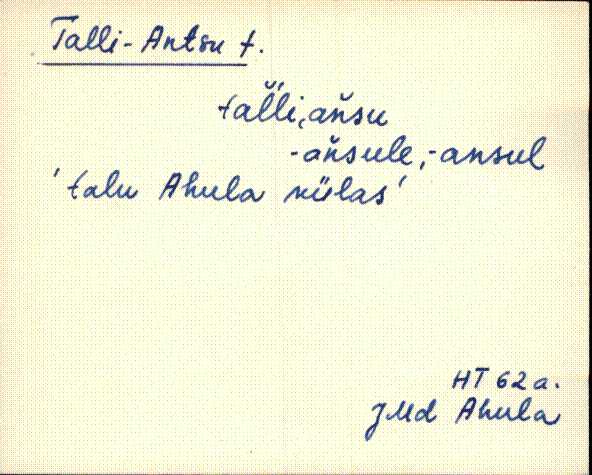 Talli-Antsu t.
tal̆l̆i,añsu
-añsule,-ansul
'talu Ahula külas'
HT 62a.
JMd Ahula